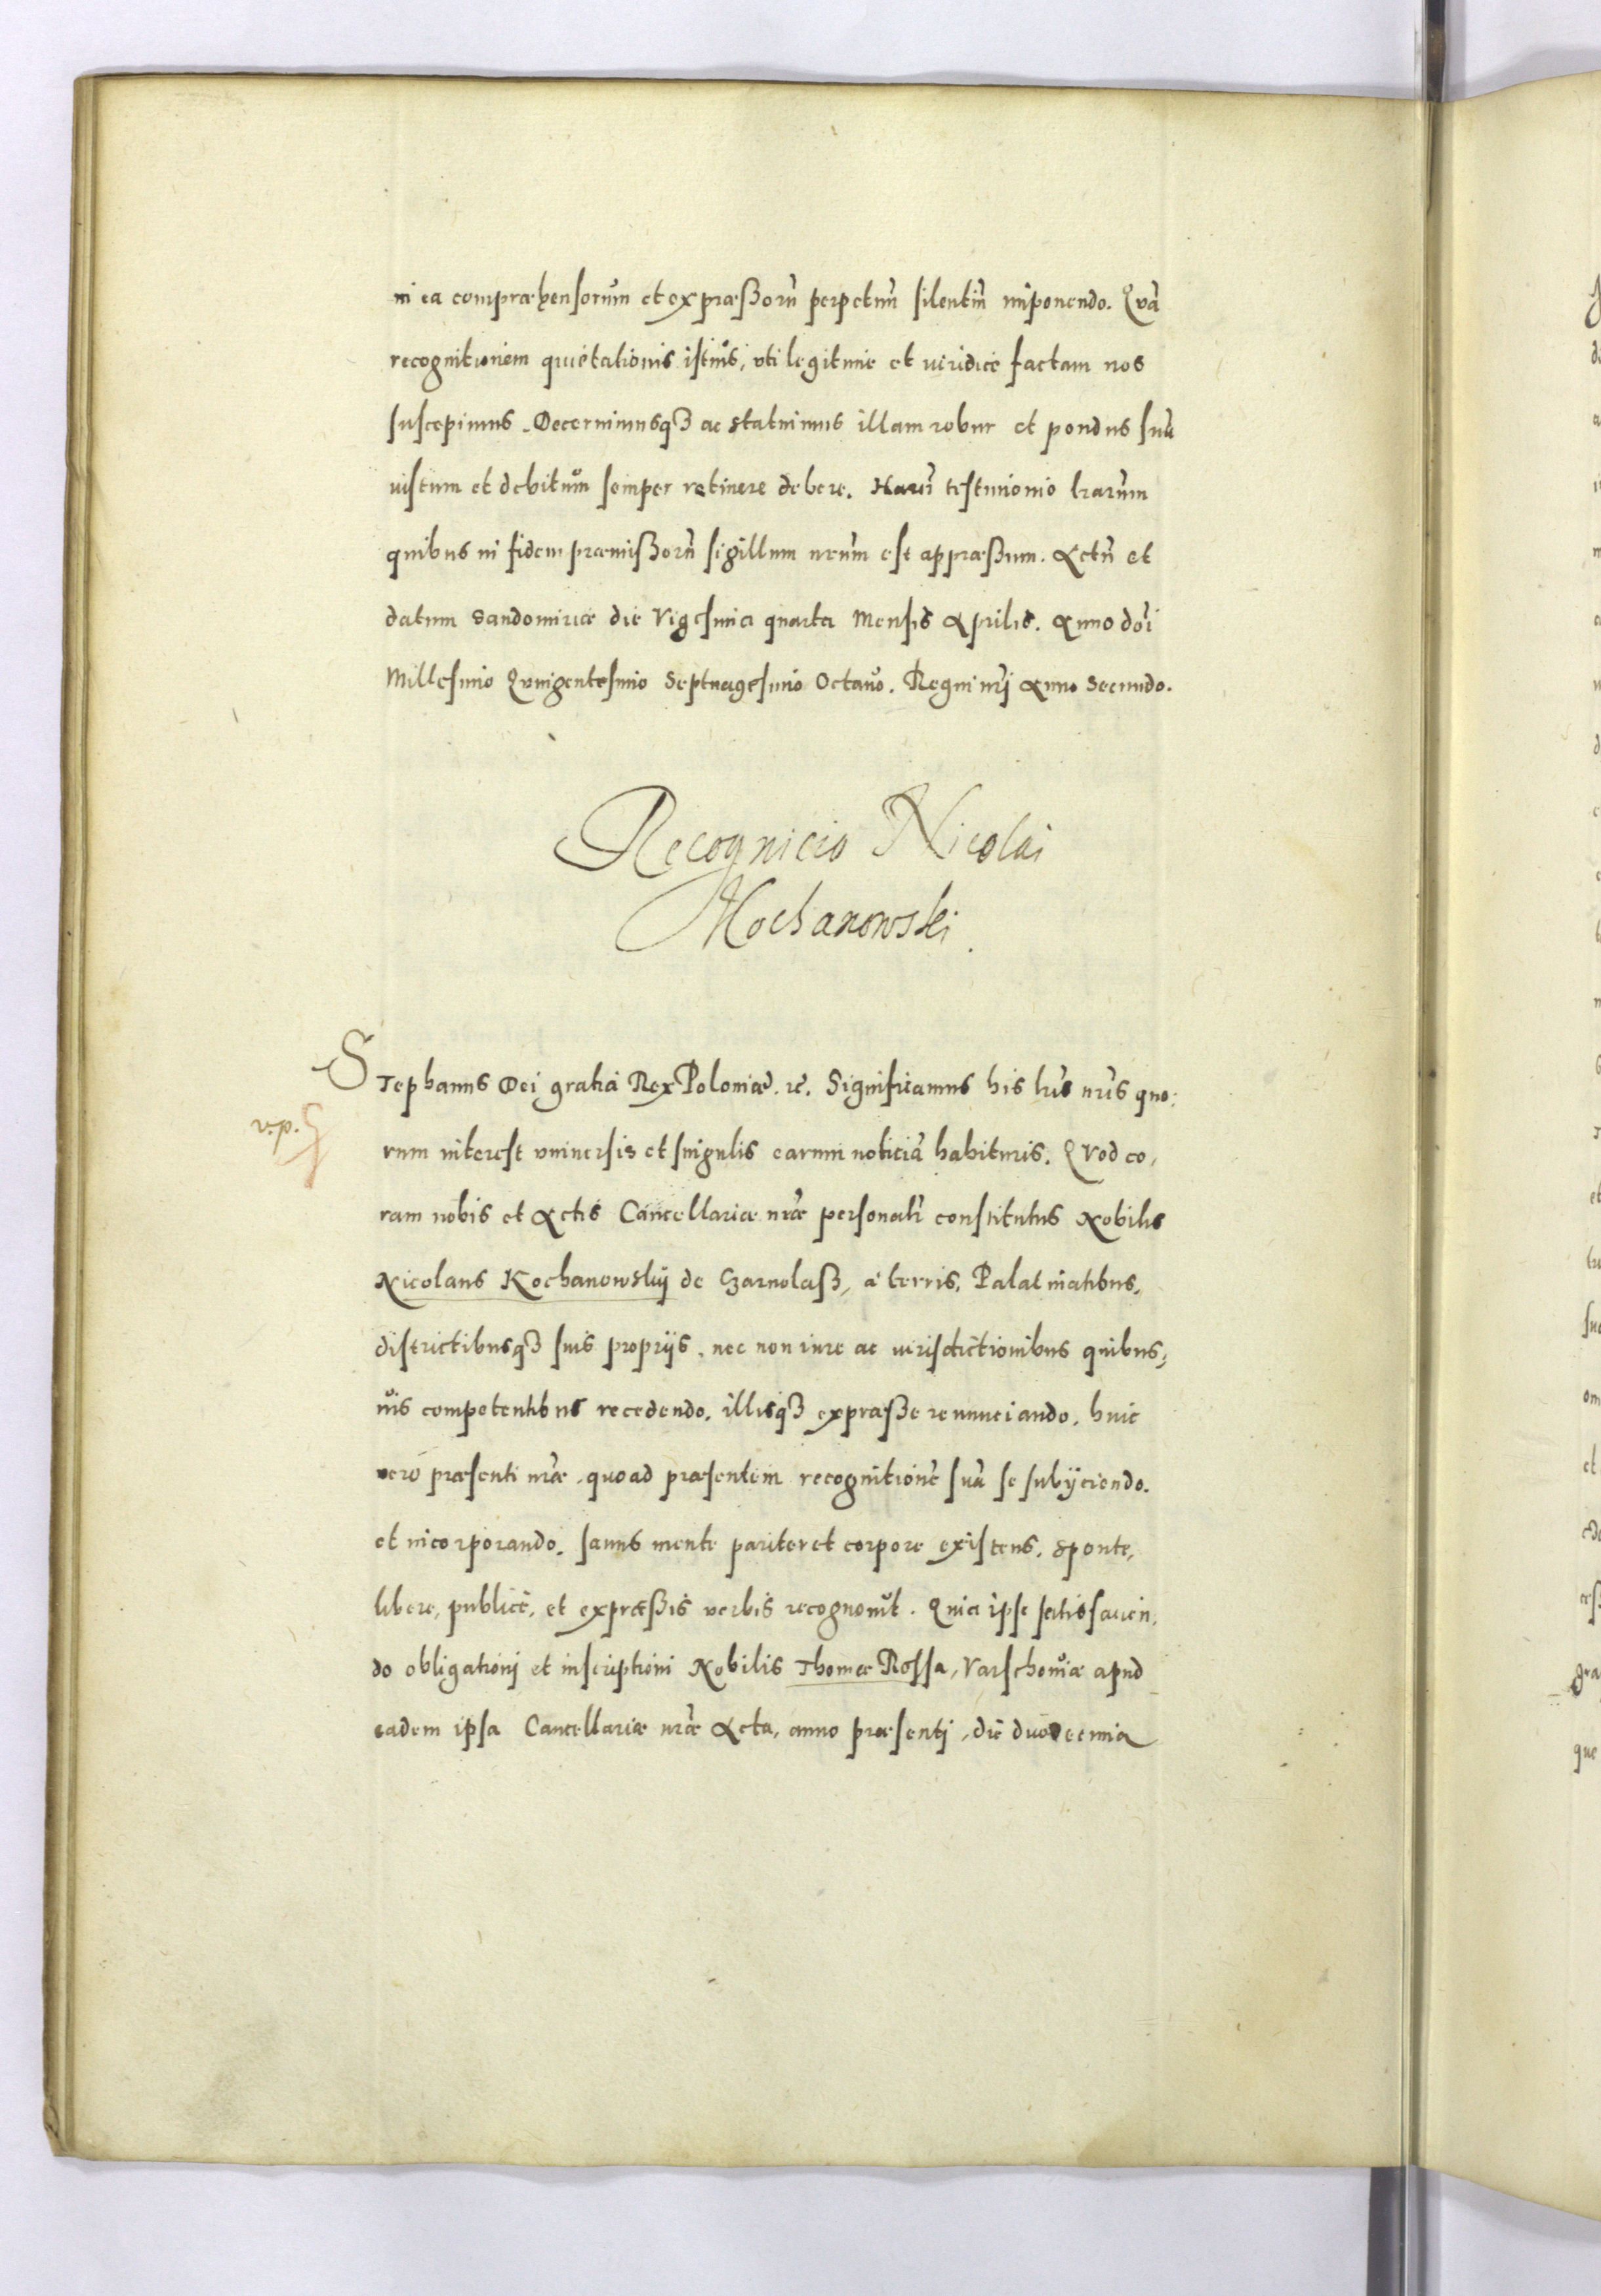 in ea compræhensorum et expræßorũ perpetuũ silentiũ imponendo. Quã
recognitionem quietationis istius, uti legitime et iuridice factam nos
suscepimus. Decernimusqȝ ac statuimus illam robur et pondus suũ
iustum et debitum semper retinere debere. Harũ testimonio lrarum
quibus in fidem præmißorũ sigillum nrum est appræßum. Actũ et
datum Sandomiriæ die Vigesima quarta Mensis Aprilis. Anno dñi
Millesimo Quingentesimo Septuagesimo Octavo. Regni nri Anno Secundo.
Recognicio Nicolai
Kochanowski.
Stephanus Dei gratia Rex Poloniæ. &c. Significamus his lris nris quo:
v.p.
rum interest universis et singulis earum noticiã habituris. Quod co,
ram nobis et Actis Cancellariæ nræ personalr constitutus Nobilis
Nicolaus Kochanowskij de Czarnolaß, a terris, Palatinatibus,
districtibusqȝ suis proprijs, nec non iure ac iurisdictionibus quibus,
vis competentibus recedendo, illisqȝ expræße renunciando, huic
vero præsenti nræ, quoad præsentem recognitionẽ suã se subijciendo.
et incorporando, sanus mente pariter et corpore existens, sponte,
libere, publicè, et expræßis verbis recognovit. Quia ipse satisfacien,
do obligationj et inscriptioni Nobilis Thomæ Rossa, Varschoviæ apud
eadem ipsa Cancellariæ nræ Acta, anno præsentj, die duodecima